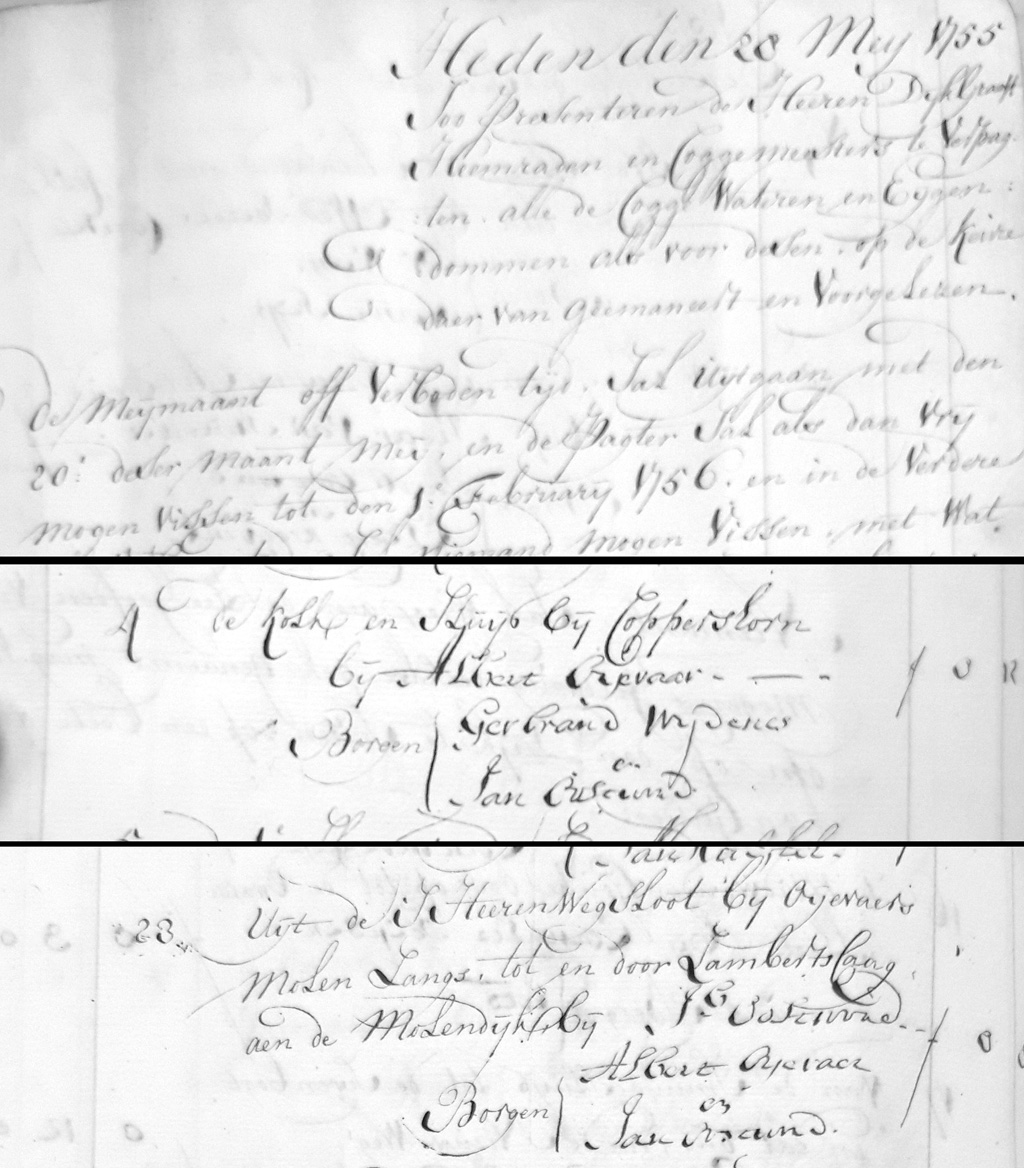 Heden den 28 Meij 1755
Soo Presenteren de Heeren Dijkgraaff
Heemraden en Coggemeesters te Verpag-
:ten. alle de Cogge Wateren en Eijgen:
:dommen als voor desen. op de Keure
daer van geemaneert en Voorgelesen.
de Meijmaant off Verboden tijd. Sal Uijtgaan met den
20: deser maant Meij. en de Pagter Sal als dan Vrij
mogen Vissen tot den 1: February 1756. en in de Verdere
niemand mogen Vissen. met Wat
4 de Kolk en Sluijs bij Coppershorn
bij Albert Oijevaer. — .
Borgen Gerbrand Wijdenes
en
Jan
23 Uijt de S Heeren Weg Sloot bij Oijevaers
Molen Langs. tot en door Lamberts Caag
aen de Molendijk bij
Albert Oijevaer
Borgen en
Jan